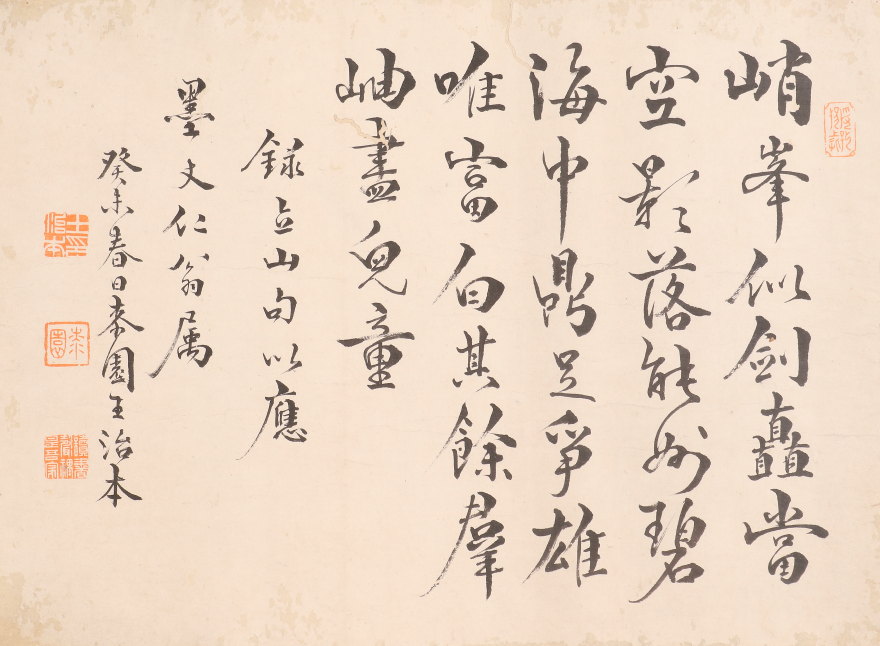 峭峯似劍矗當
空影落能州碧
海中鼎足爭雄
唯富白其餘羣
岫盡兒童
錄立山句以應
墨丈仁翁屬
癸未春日桼園王治本
王印治本
桼園